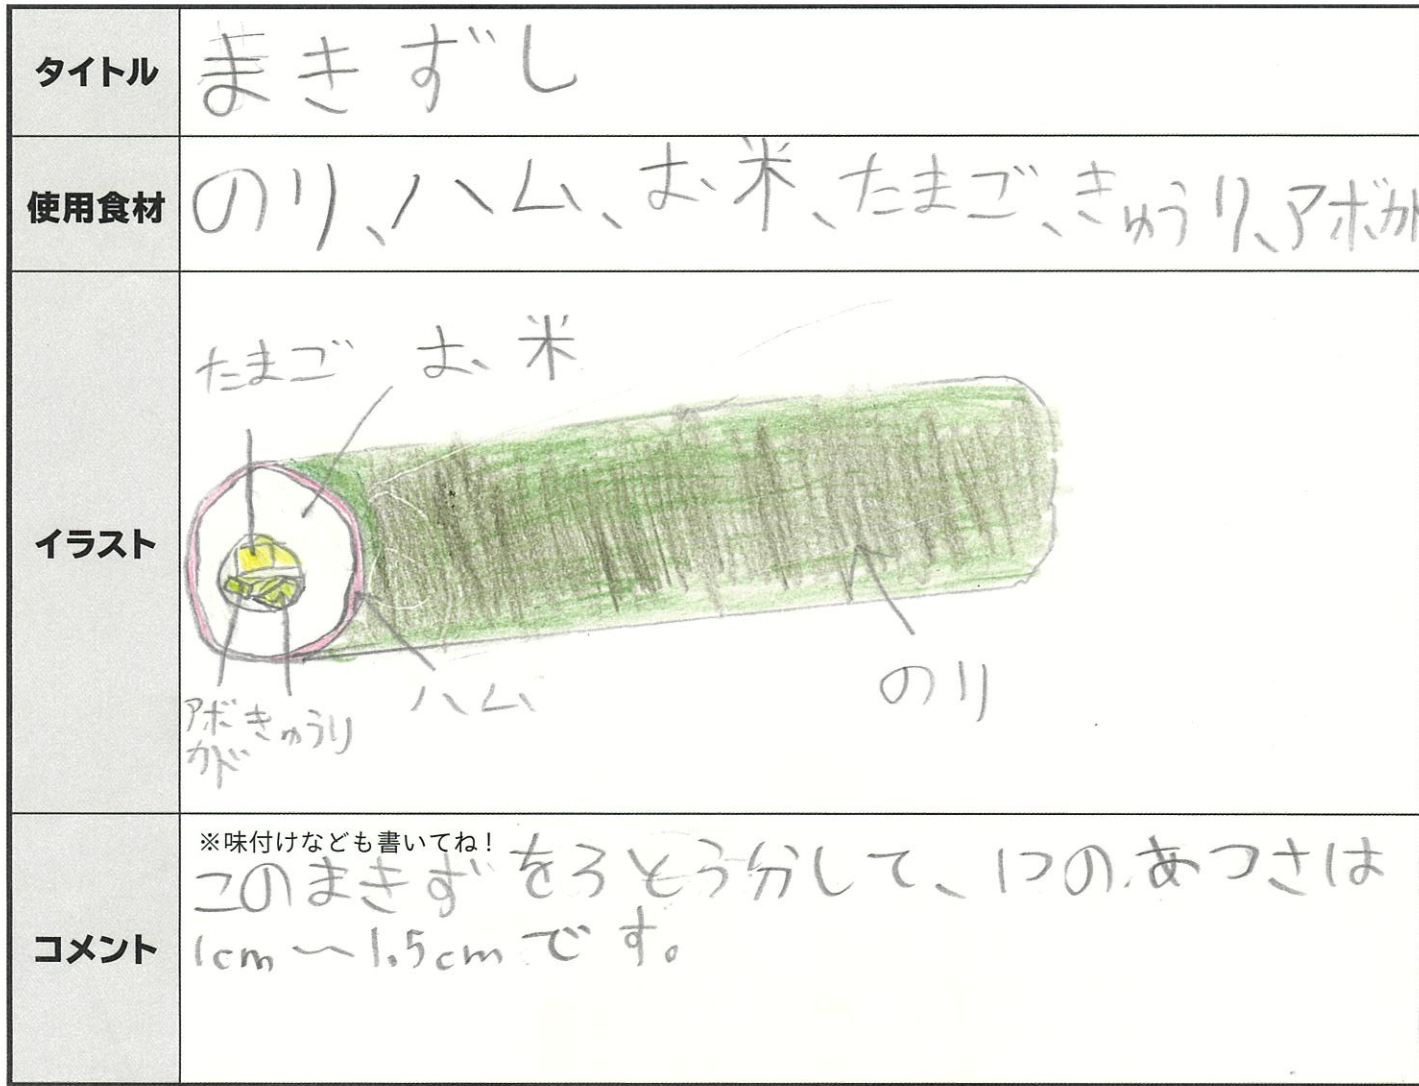 タイトル
まきずし
使用食材
のり、ハム、お米、たまご、きゅうり、アボカ
イラスト
たまご お米
のり
ハム
アボ きゅうり
カド
コメント
※味付けなども書いてね！
このまきず をろとう分して、1つのあつさは
1cm〜1.5cmです。